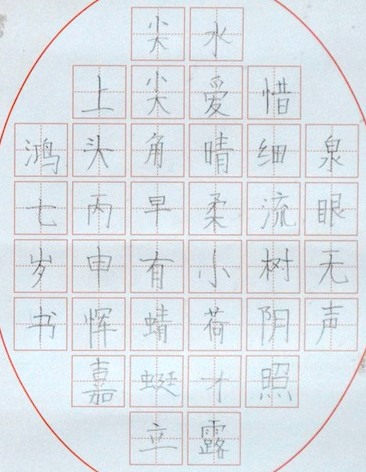 泉眼无声
惜细流树阴照
水爱晴柔小荷才露
尖尖角早有蜻蜓立
上头丙申恽嘉
鸿七岁书